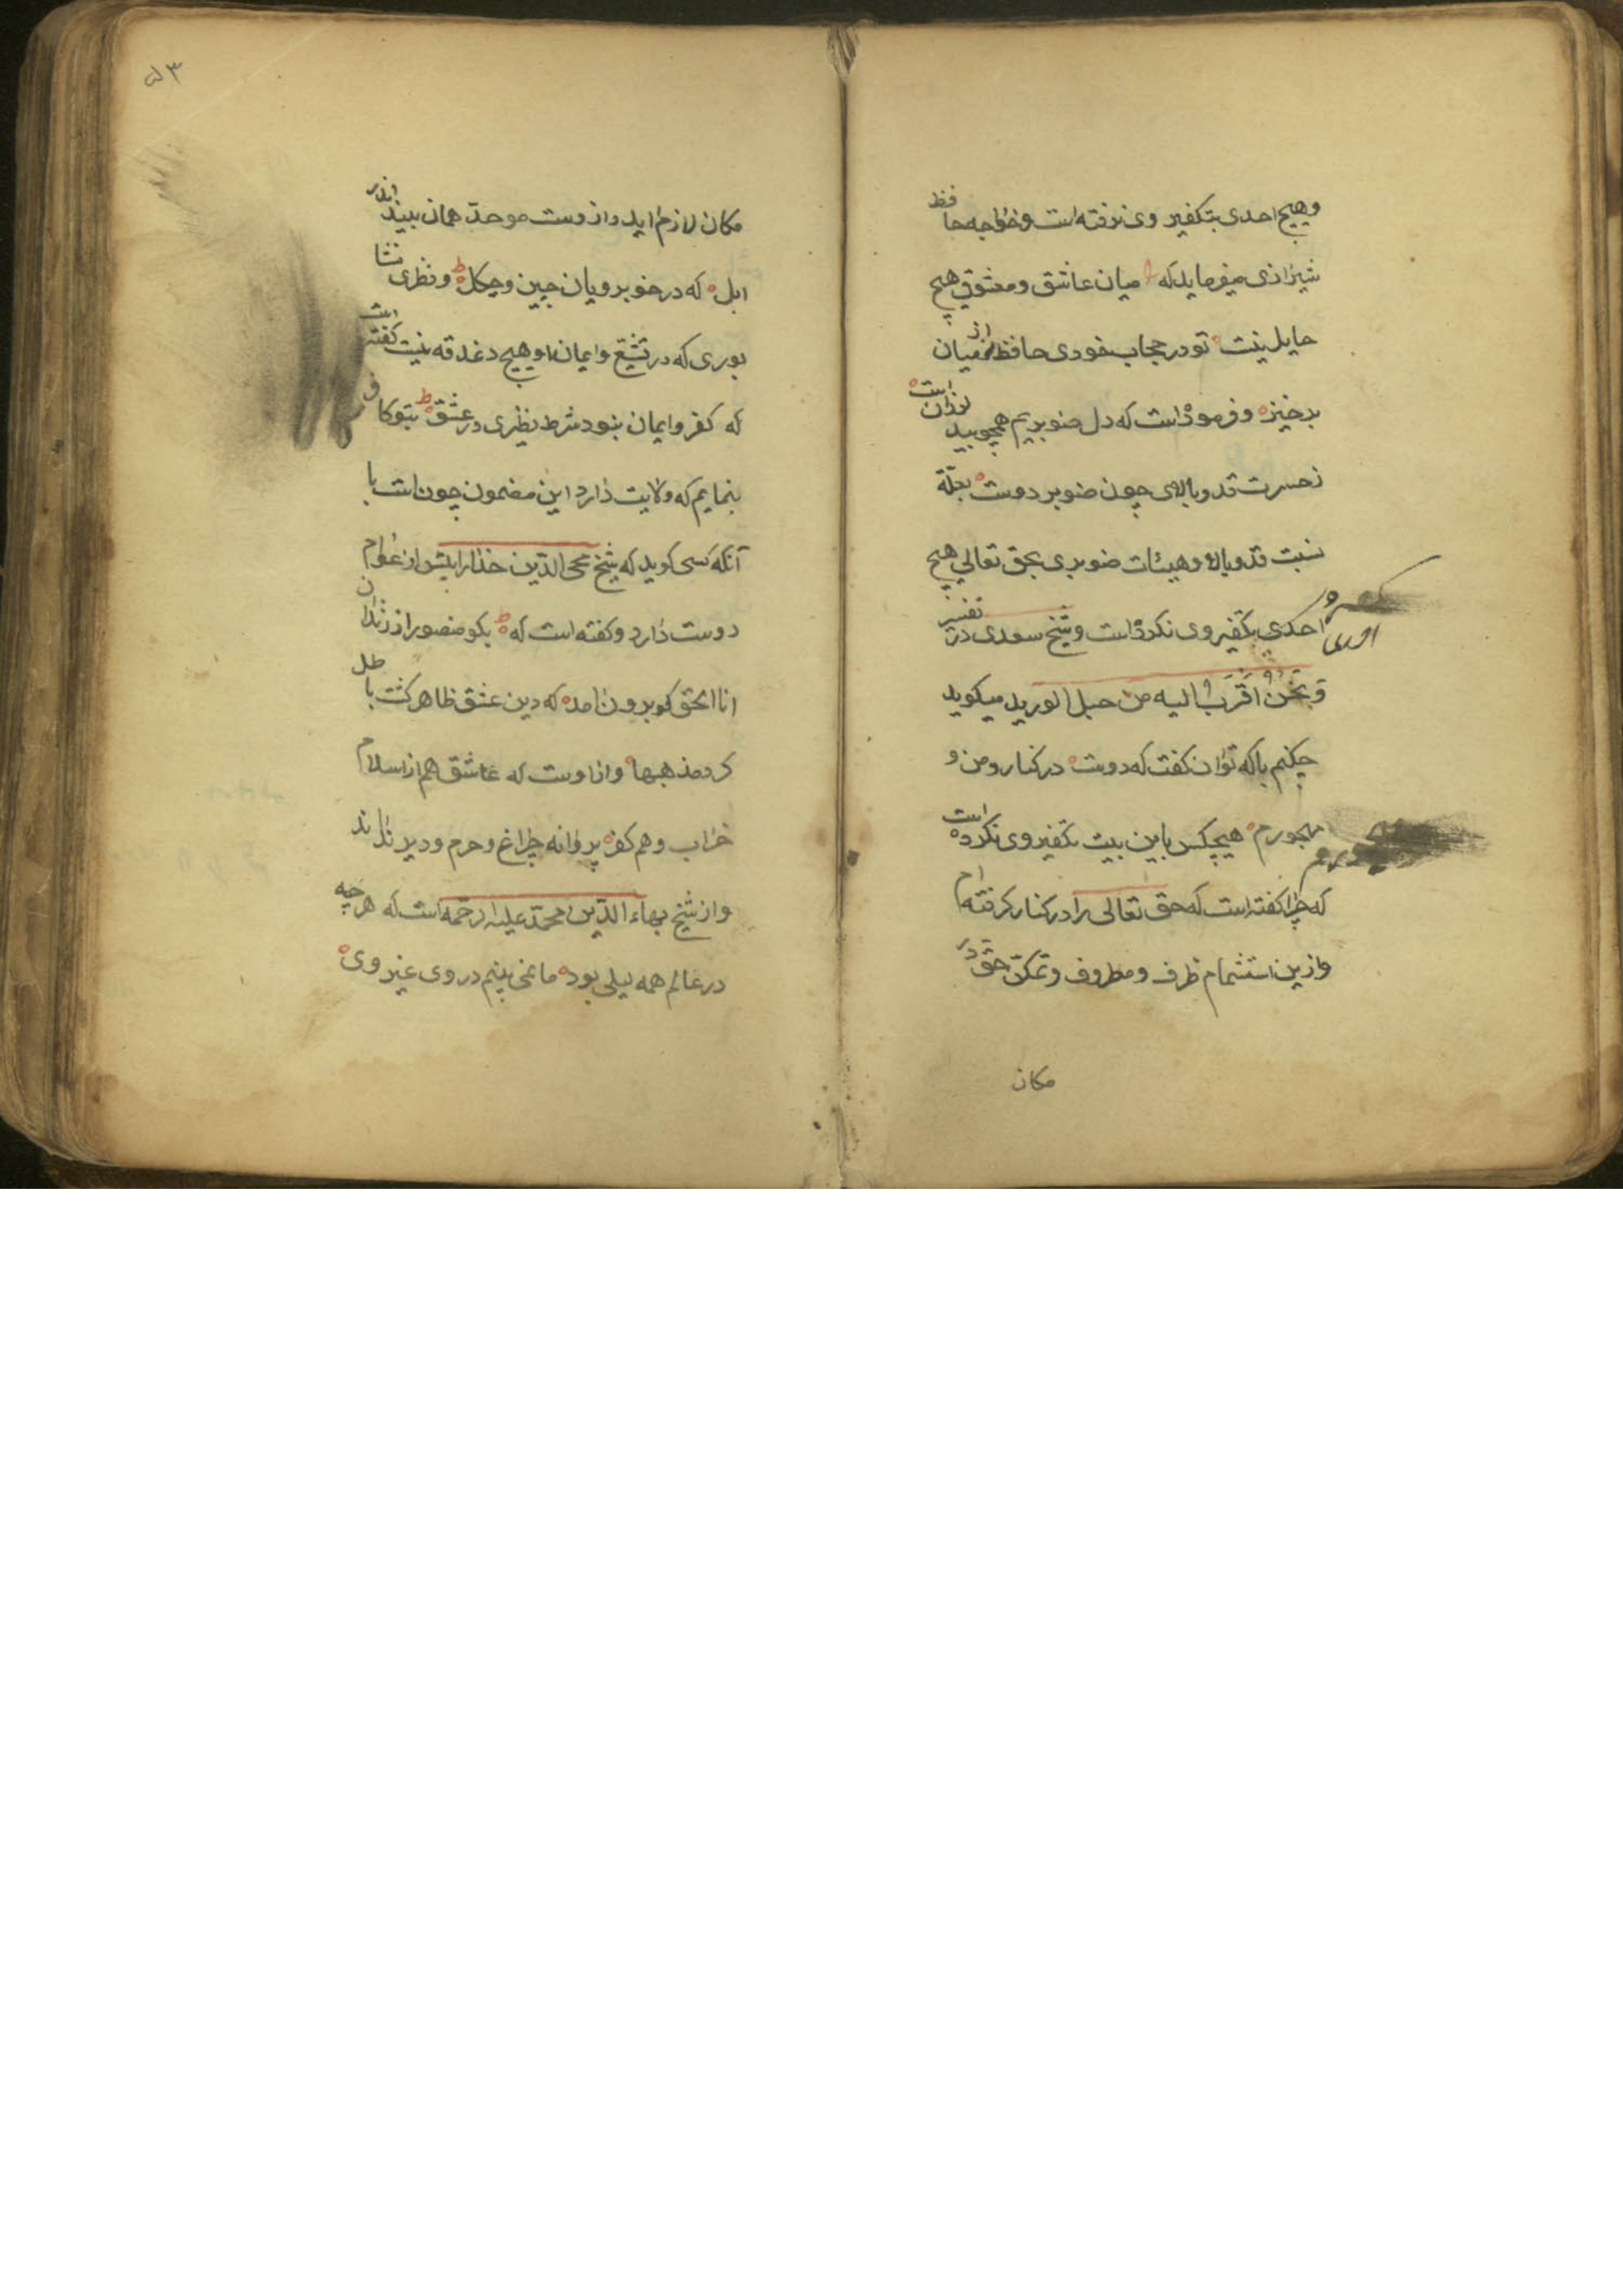 وهیچ احدی بتکفیر وی نرفته است وخواجه حافظ
شیرازی میفرماید که میان عاشق ومعشوق هیچ
حایل نیست تو در حجاب خودی حافظ از میان
برخیز وفرموده است که دل صنوبریم همچو بید لرزان است
ز حسرت قد وبالای چون صنوبر دوست بعلّة
نسبت قد وبالا وهیئات صنوبری بحق تعالی هیچ
احدی تکفیر وی نکرده است وشیخ سعدی در تفسیر
وَنَحْنُ اَقْرَبُ الیه من حبل الورید میکوید
چکنم با که توان کفت که دوست در کنار ومن و
مهجورم هیچکس باین بیت تکفیر وی نکرده است
که چرا کفته است که حق تعالی را در کنار کرفته ام
وازین استشمام ظرف ومظروف وتمکّن حق در
مکان
۵۳
مکان لازم اید واز وست موحد همان بیند اندر
ابل که در خوبرویان چین وچکل ونظری نشا
بوری که در تشیّع وایمان او هیچ دغدقه نیست کفته است
که کفر وایمان نبود شرط نظیری در عشق بتو کافر
بنمایم که ولایت دارد این مضمون چون است با
آنکه کسی کوید که شیخ محی الدّین خدا را بیش از عوام
دوست دارد وکفته است که بکو منصور از زندان
انا الحق کو برون امد که دین عشق ظاهر کشت باطل
کرد مذهبها واز اوست که عاشق هم از اسلام
خراب وهم کفر پروانه چراغ وحرم ودیر نداند
واز شیخ بهاء الدّین محمّد علیه الرحمه است که هرچه
در عالم همه لیلی بود ما نمی بینم در وی غیر وی